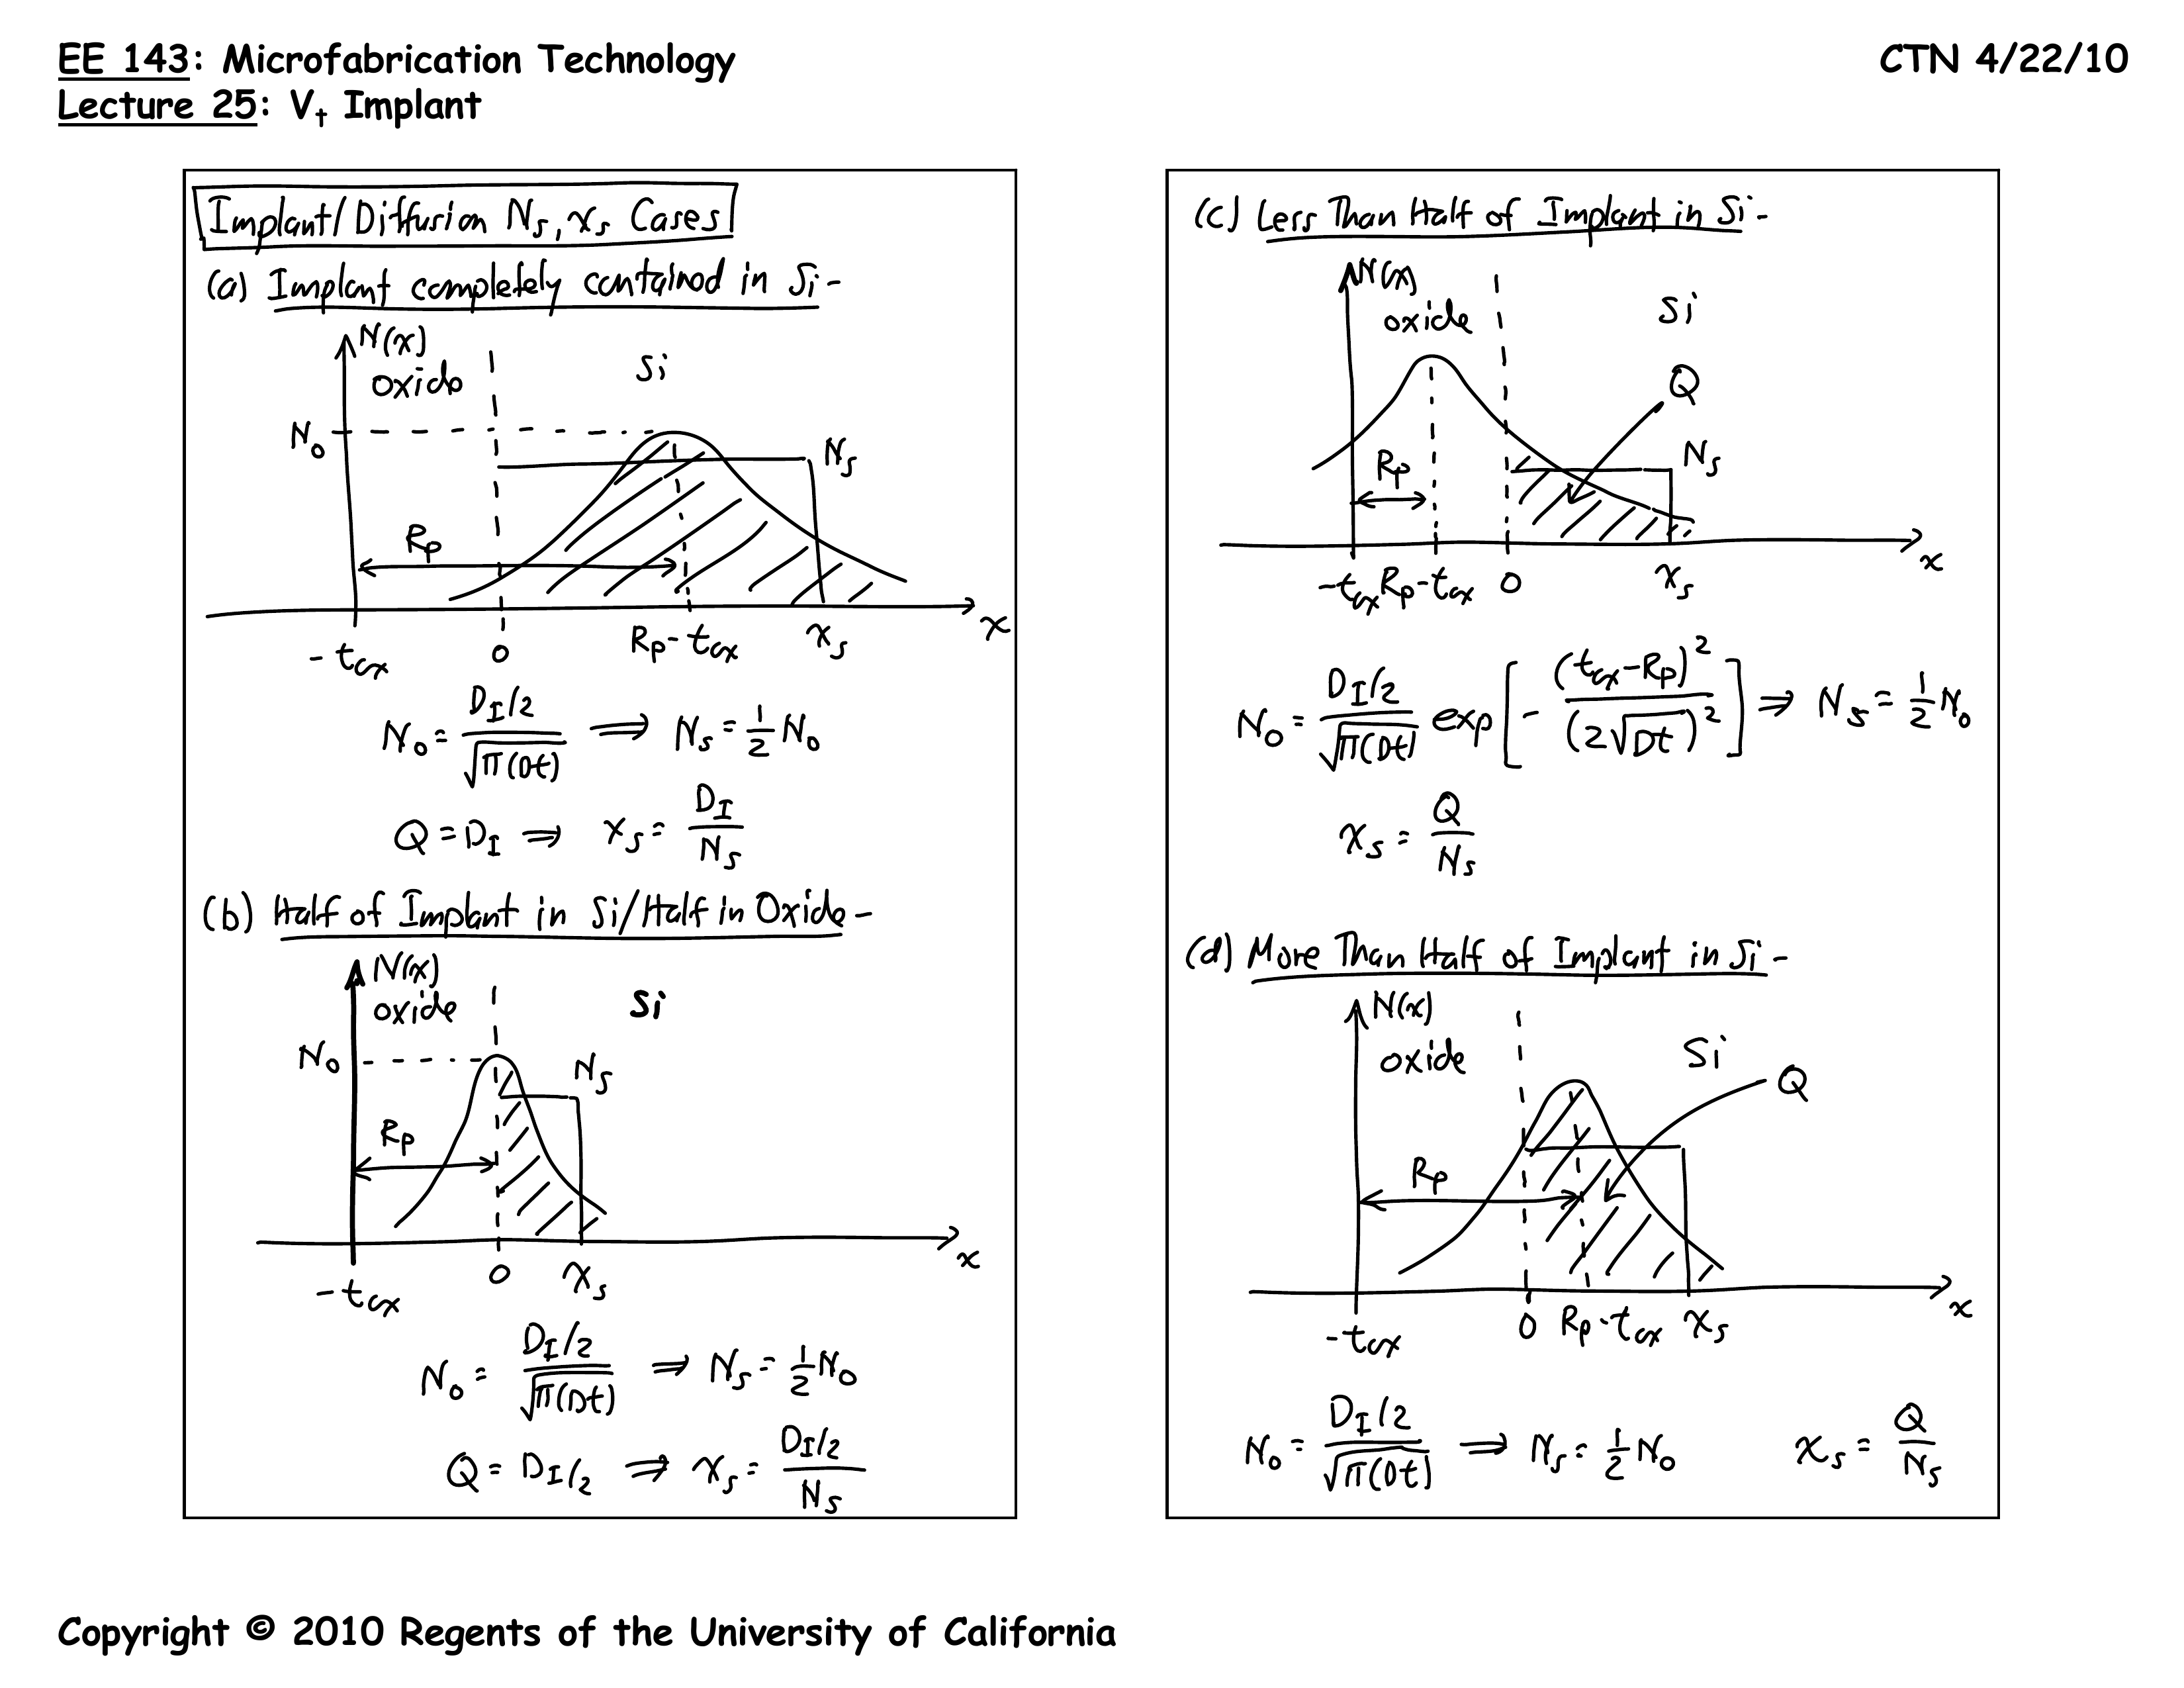 EE 143: Microfabrication Technology
CTN 4/22/10
Lecture 25: Vt Implant
Implant/Diffusion Ns, xs Cases
(a) Implant completely contained in Si-
N(x)
oxide
Si
N₀
Ns
Rp
-tox
0
Rp-tox
xs
x
N₀ = (D_I/2)/√(π(Dt)) ⟹ Ns = ½ N₀
Q = D_I ⟹ xs = D_I/Ns
(b) Half of Implant in Si/Half in Oxide-
N(x)
oxide
Si
N₀
Ns
Rp
-tox
0
xs
x
N₀ = (D_I/2)/√(π(Dt)) ⟹ Ns = ½ N₀
Q = D_I/2 ⟹ xs = (D_I/2)/Ns
(c) Less Than Half of Implant in Si-
N(x)
oxide
Si
Q
Ns
Rp
-tox
Rp-tox
0
xs
x
N₀ = (D_I/2)/√(π(Dt)) exp[-(tox-Rp)²/(2√Dt)²] ⟹ Ns = ½ N₀
xs = Q/Ns
(d) More Than Half of Implant in Si-
N(x)
oxide
Si
Q
Rp
-tox
0
Rp-tox
xs
x
N₀ = (D_I/2)/√(π(Dt)) ⟹ Ns = ½ N₀
xs = Q/Ns
Copyright © 2010 Regents of the University of California